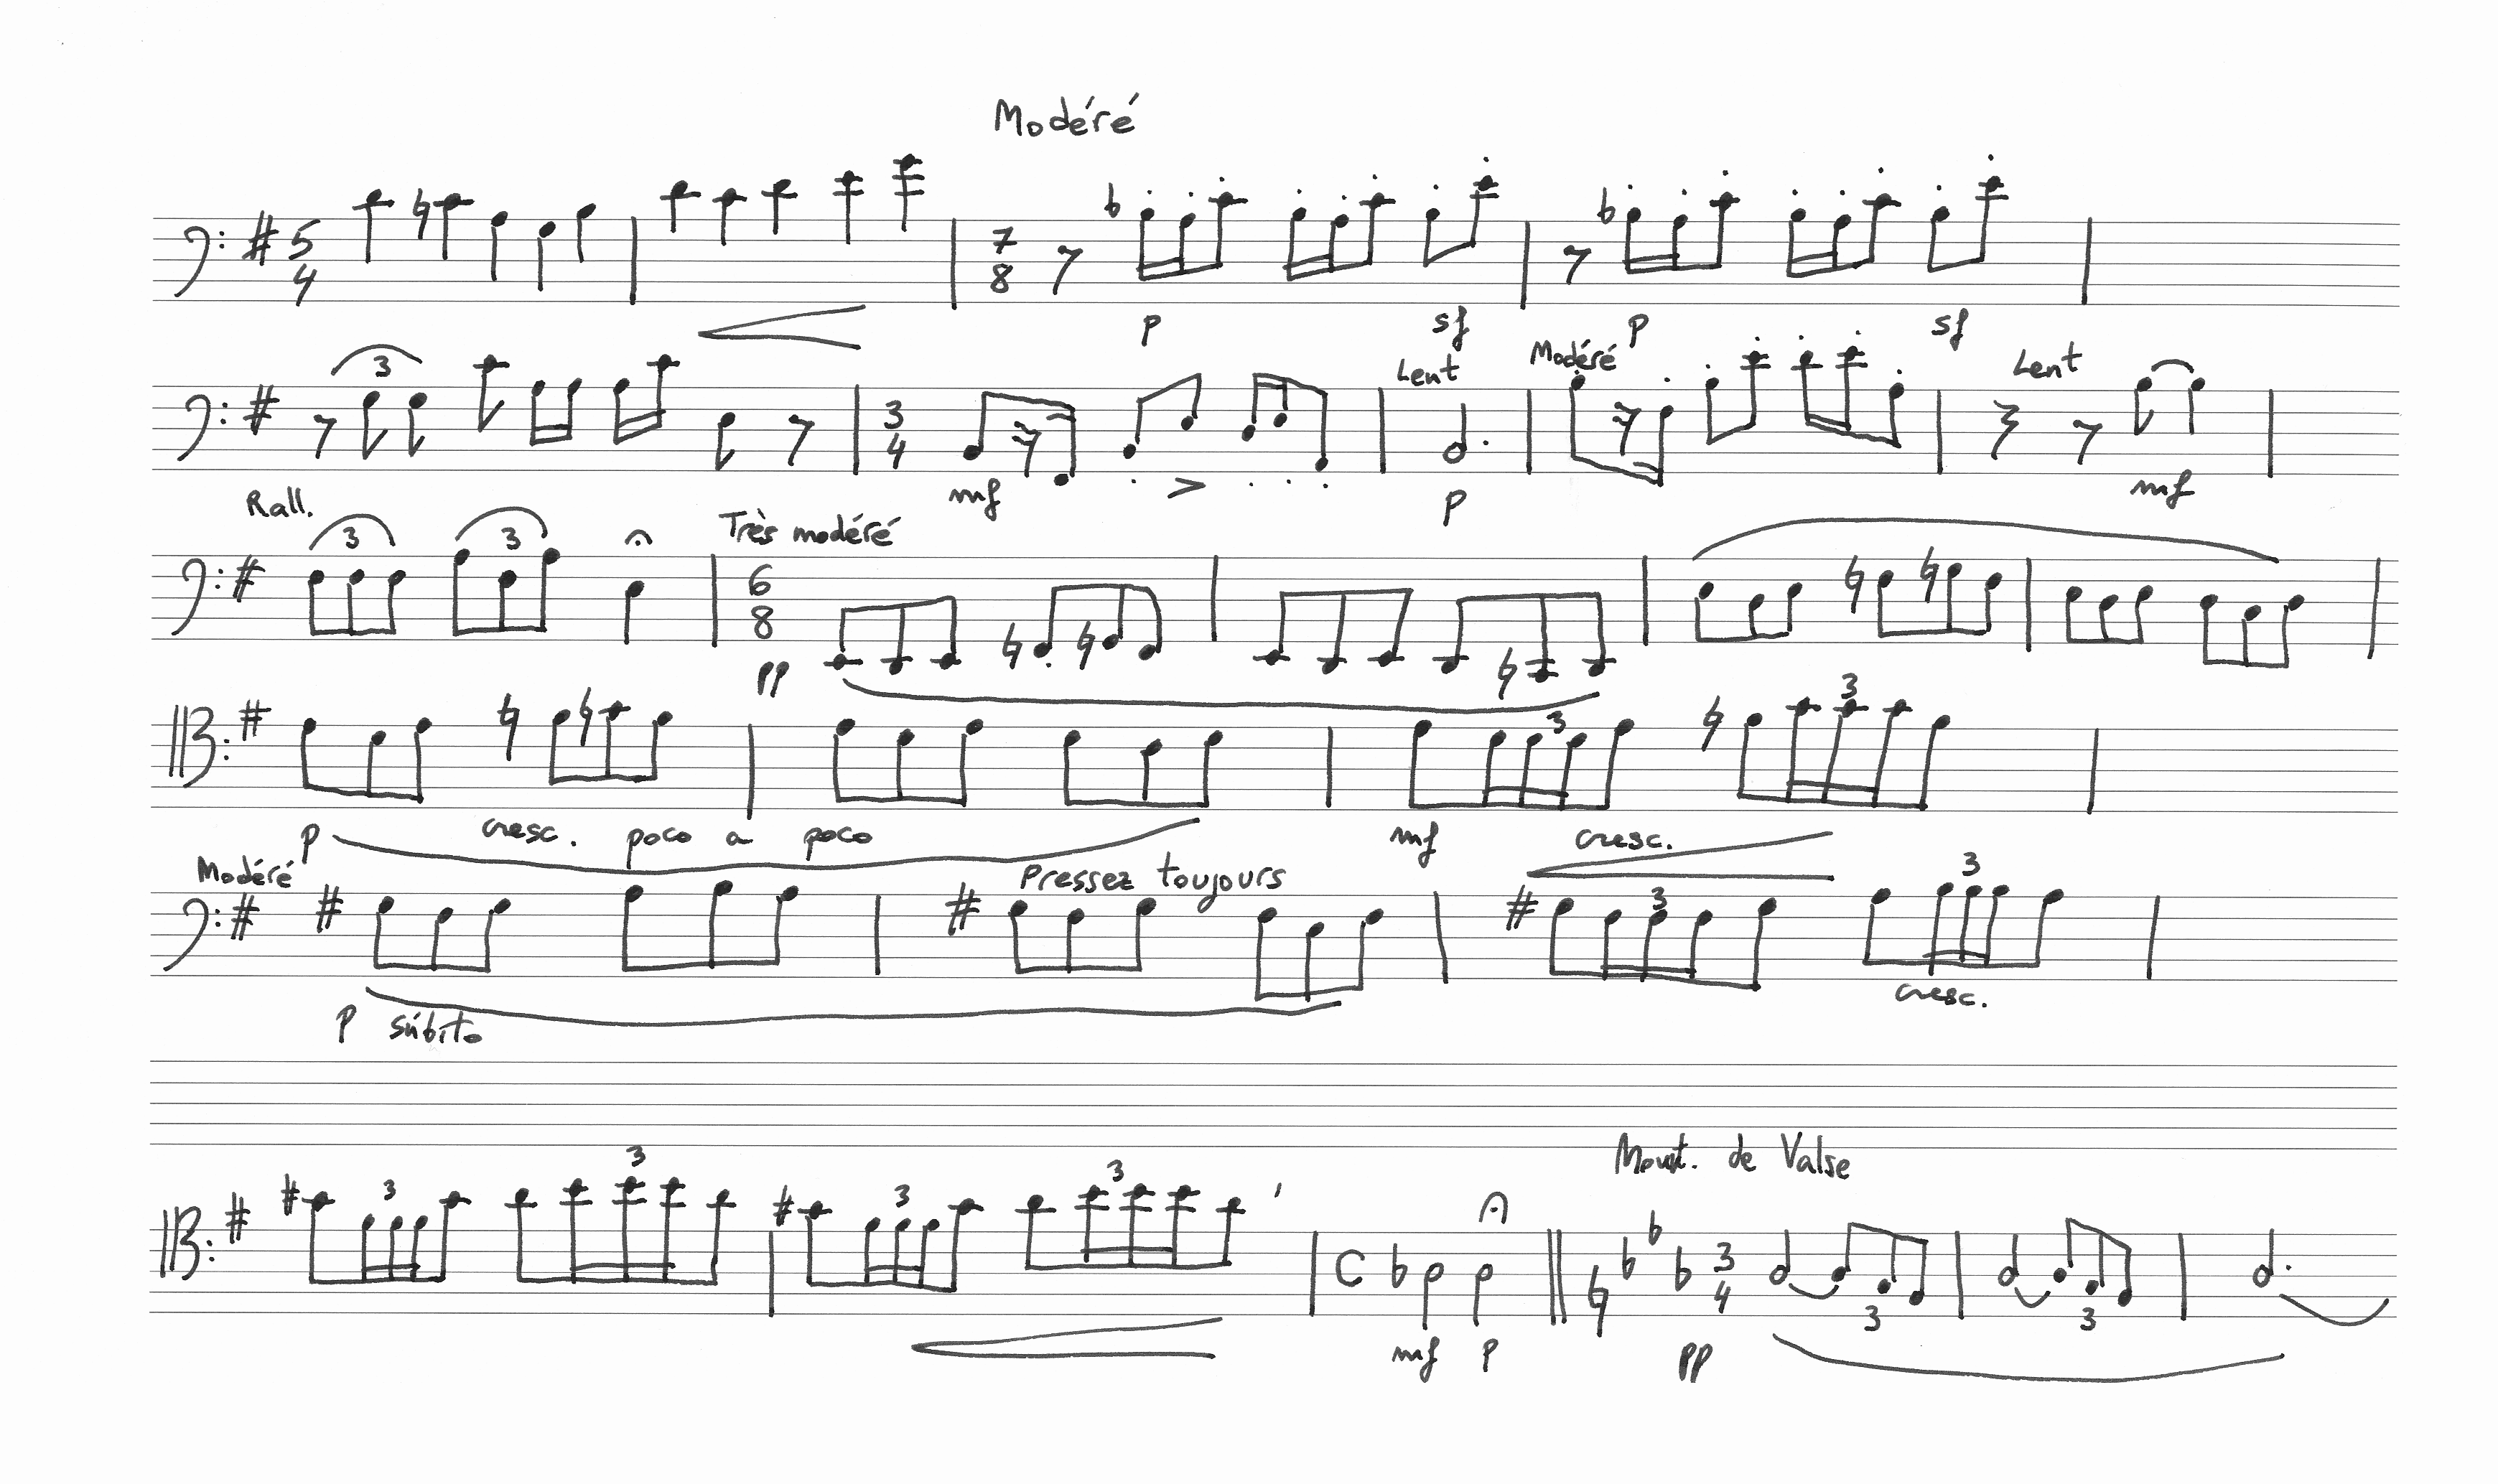 Modéré
5 4 7 8
p sf p sf
3 3 4 Lent Modéré Lent
mf p mf
Rall. 3 3 Très modéré 6 8
pp
3 3
p cresc. poco a poco mf cresc.
Modéré Pressez toujours 3 3
cresc.
p súbito
Mouvt. de Valse
3 3 3 3 C 3 4 3 3
mf p pp